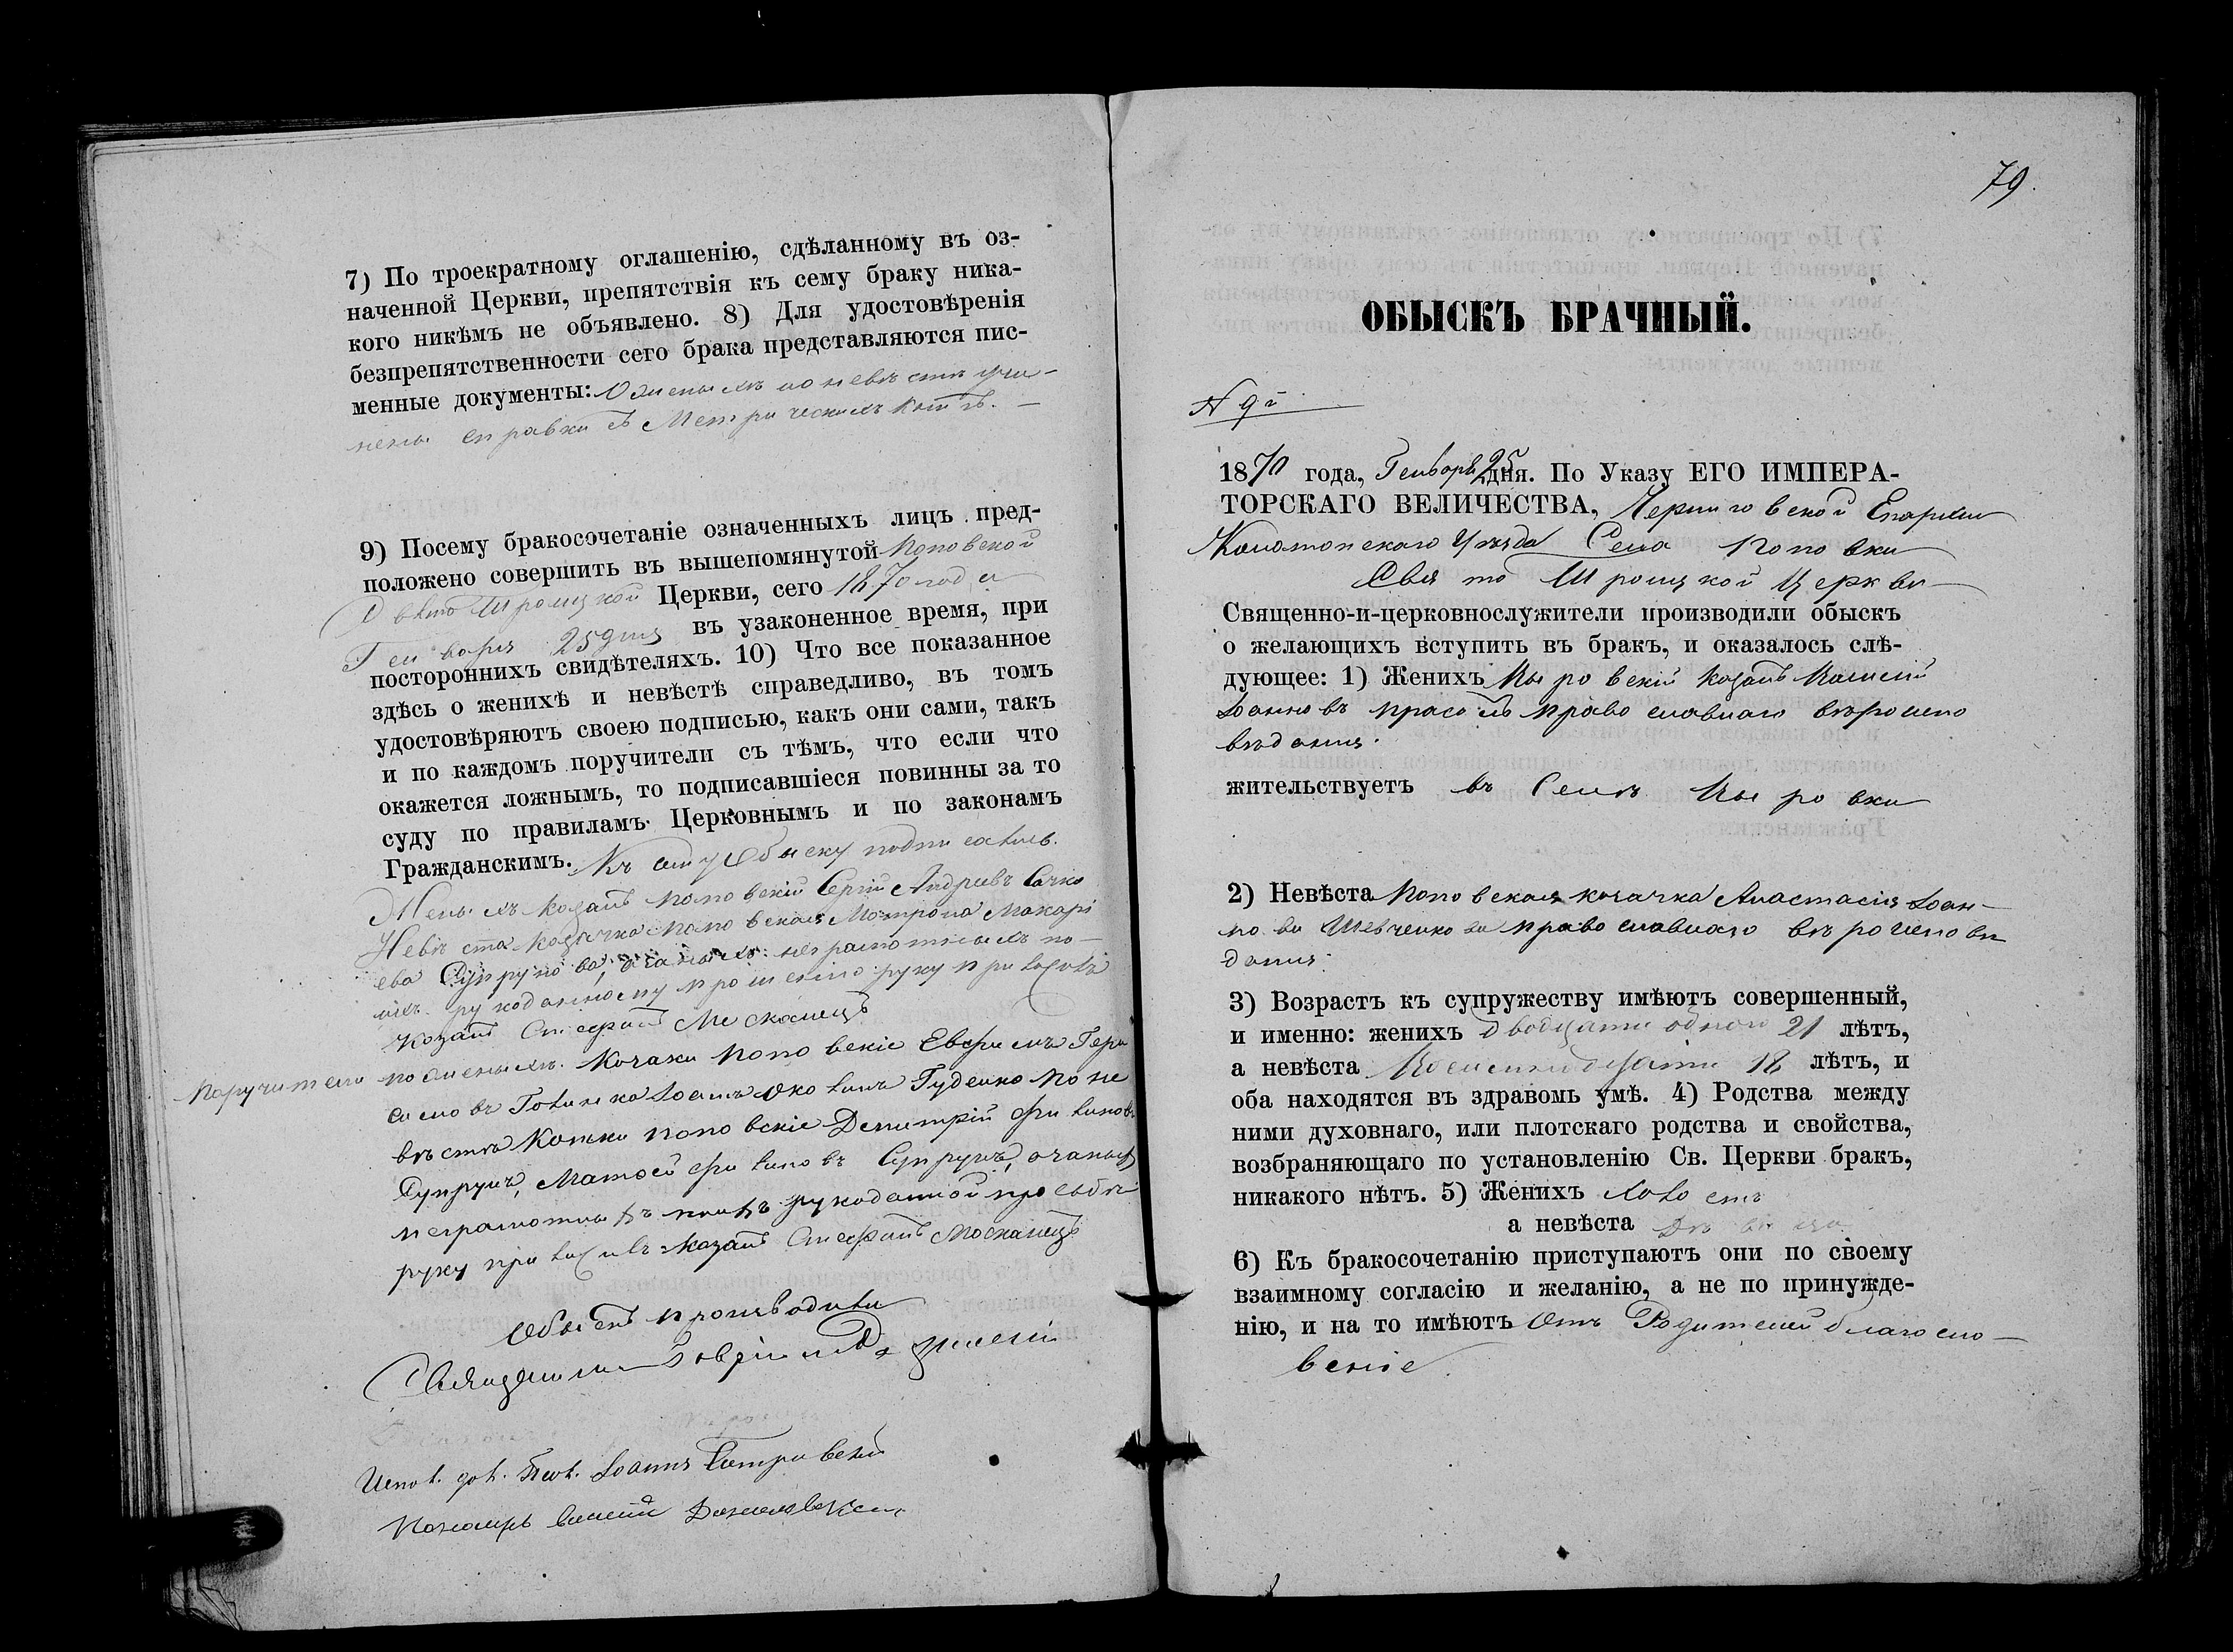 7) По троекратному оглашенію, сдѣланному въ оз-
наченной Церкви, препятствія къ сему браку ника-
кого никѣмъ не объявлено. 8) Для удостовѣренія
безпрепятственности сего брака представляются пис-
менные документы: О женихѣ и о невѣстѣ учи-
нены справки въ Метрическихъ
9) Посему бракосочетаніе означенныхъ лицъ пред-
положено совершить въ вышепомянутой Поповской
Свято Троицкой Церкви, сего 1870 года
Генваря 25 дня въ узаконенное время, при
постороннихъ свидѣтеляхъ. 10) Что все показанное
здѣсь о женихѣ и невѣстѣ справедливо, въ томъ
удостовѣряютъ своею подписью, какъ они сами, такъ
и по каждомъ поручители съ тѣмъ, что если что
окажется ложнымъ, то подписавшіеся повинны за то
суду по правиламъ Церковнымъ и по законамъ
Гражданскимъ. Къ сему Обыску подписались
Женихъ козакъ Поповскій Сергій Андреевъ Сачко
Невѣста козачка Поповская Мотрона Макарі
ева Супрунова, а за нихъ неграмотныхъ по
ихъ рукоданному прошенію руку приложилъ
козакъ Стефанъ Москалецъ
Поручители по женихѣ козаки Поповскіе Евфимъ Гера
симовъ Іоаннъ Гуденко По не
вѣстѣ Козаки Поповскіе Димитрій Филиповъ
Супрунъ, Матѳей Филиповъ Супрунъ, а за нихъ
неграмотныхъ по ихъ рукоданной прозьбѣ
руку приложилъ козакъ Стефанъ Москалецъ
Обыскъ производили
Священникъ Гавріилъ
Испол. дол. Псал. Іоаннъ
Пономарь

79.
ОБЫСКЪ БРАЧНЫЙ.
N 9й
1870 года, Генваря 25 дня. По Указу ЕГО ИМПЕРА-
ТОРСКАГО ВЕЛИЧЕСТВА, Черниговской Епархіи
Конотопскаго Уѣзда Села Поповки
Свято Троицкой Церкви
Священно-и-церковнослужители производили обыскъ
о желающихъ вступить въ бракъ, и оказалось слѣ-
дующее: 1) Женихъ козакъ
Іоанновъ православнаго вѣроиспо
вѣданія.
жительствуетъ въ Селѣ
2) Невѣста Поповская козачка Анастасія Іоан-
нова Шевченкова православнаго вѣроисповѣ
данія.
3) Возрастъ къ супружеству имѣютъ совершенный,
и именно: женихъ двадцати одного 21 лѣтъ,
а невѣста Восемнадцати 18 лѣтъ, и
оба находятся въ здравомъ умѣ. 4) Родства между
ними духовнаго, или плотскаго родства и свойства,
возбраняющаго по установленію Св. Церкви бракъ,
никакого нѣтъ. 5) Женихъ холостъ
а невѣста Дѣвица
6) Къ бракосочетанію приступаютъ они по своему
взаимному согласію и желанію, а не по принужде-
нію, и на то имѣютъ Отъ Родителей благосло-
веніе.